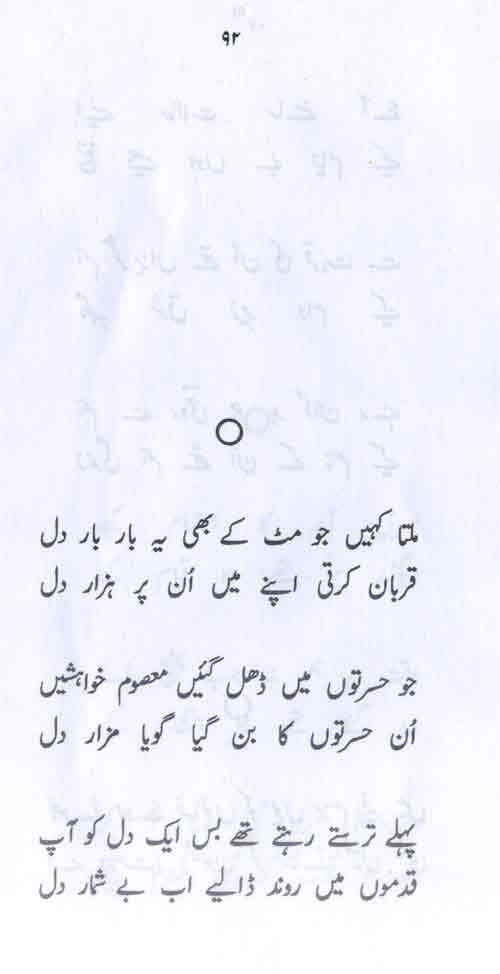 ۹۲
ملتا کہیں جو مٹ کے بھی یہ بار بار دل
قربان کرتی اپنے میں اُن پر ہزار دل
جو حسرتوں میں ڈھل گئیں معصوم خواہشیں
اُن حسرتوں کا بن گیا گویا مزار دل
پہلے ترستے رہتے تھے بس ایک دل کو آپ
قدموں میں روند ڈالیے اب بے شمار دل